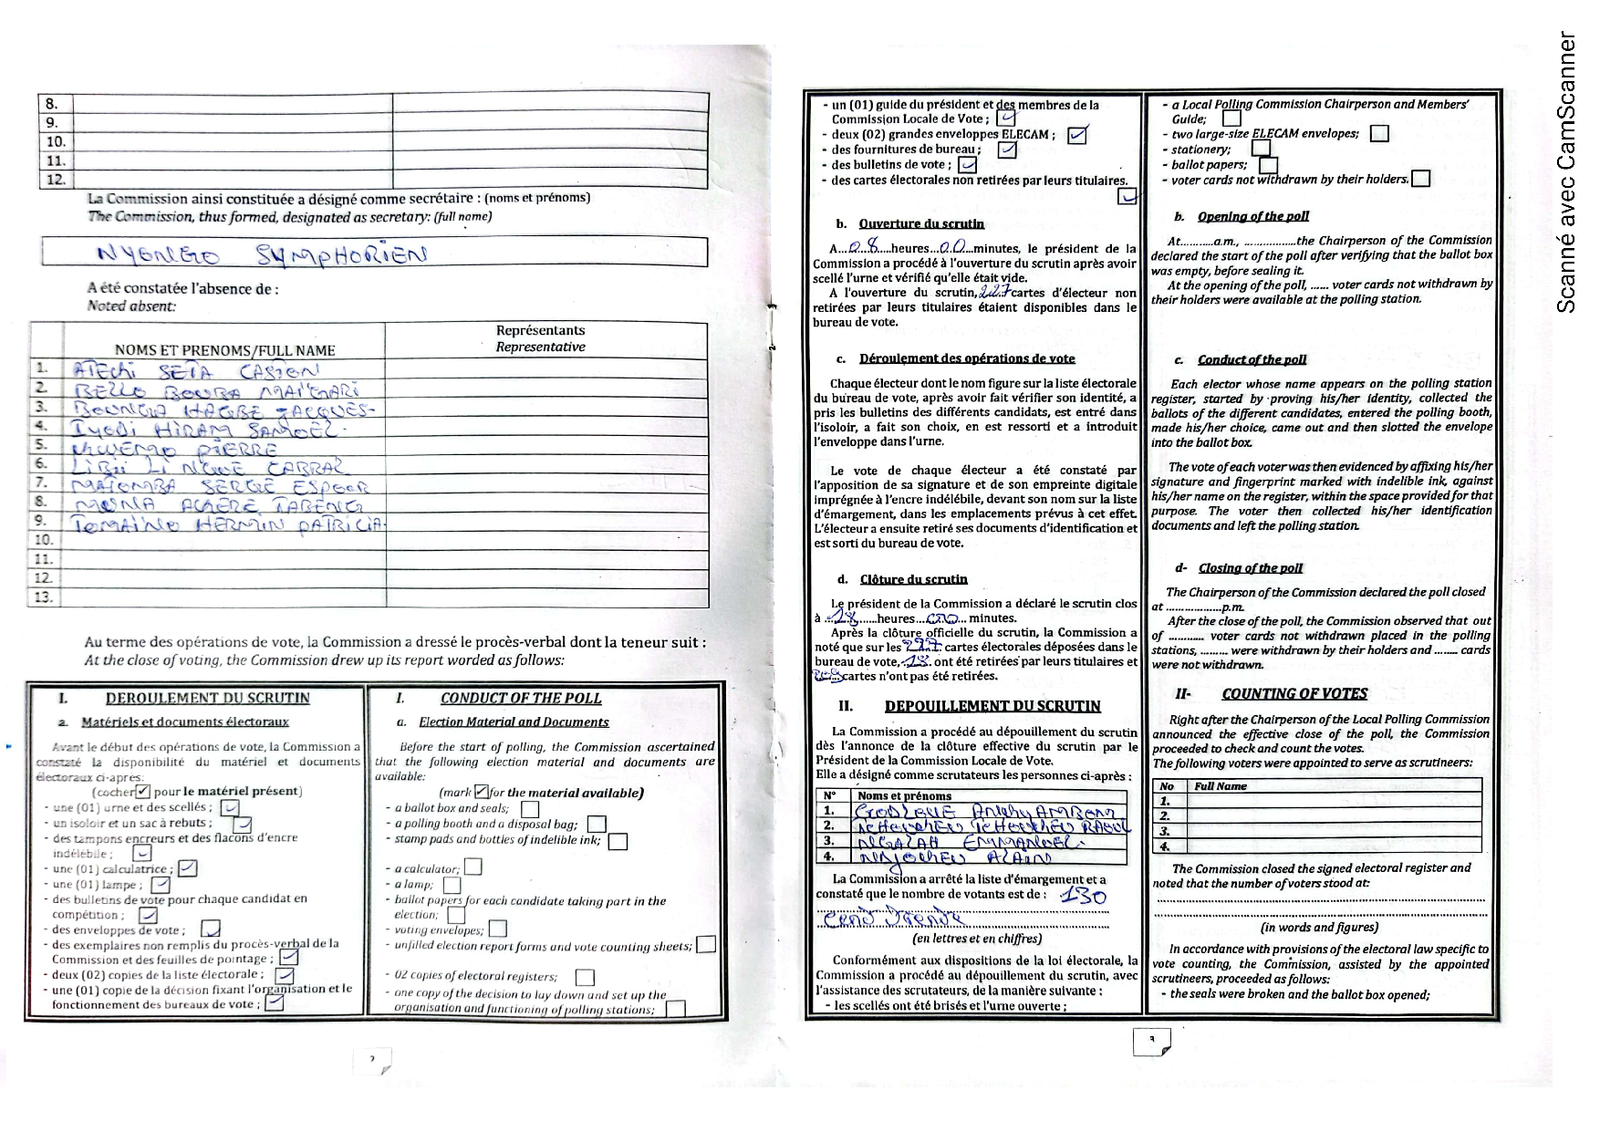 8.
9.
10.
11.
12.
La Commission ainsi constituée a désigné comme secrétaire : (noms et prénoms)
The Commission, thus formed, designated as secretary: (full name)
SYMPHORIEN
A été constatée l'absence de :
Noted absent:
NOMS ET PRENOMS/FULL NAME
Représentants
Representative
1. ATECHI SETA CASTON
2. BELLO BOUBA MAI'GARI
3. BOUNGHA HAGBE JACQUES-
4. IYODI HIRAM SAMUEL
5. PIERRE
6. LIBII LI NGUE CABRAL
7. MATOMBA SERGE ESPOOR
8. MUNA ACHERE TABENG
9. TOMAINO HERMIN PATRICIA
10.
11.
12.
13.
Au terme des opérations de vote, la Commission a dressé le procès-verbal dont la teneur suit :
At the close of voting, the Commission drew up its report worded as follows:
I. DEROULEMENT DU SCRUTIN
a. Matériels et documents électoraux
Avant le début des opérations de vote, la Commission a
constaté la disponibilité du matériel et documents
électoraux ci-apres:
(cocher ✓ pour le matériel présent)
- une (01) urne et des scellés ; ✓
- un isoloir et un sac à rebuts ; ✓
- des tampons encreurs et des flacons d'encre
indélébile ; ✓
- une (01) calculatrice ; ✓
- une (01) lampe ; ✓
- des bulletins de vote pour chaque candidat en
compétition ; ✓
- des enveloppes de vote ; ✓
- des exemplaires non remplis du procès-verbal de la
Commission et des feuilles de pointage ; ✓
- deux (02) copies de la liste électorale ; ✓
- une (01) copie de la décision fixant l'organisation et le
fonctionnement des bureaux de vote ; ✓
I. CONDUCT OF THE POLL
a. Election Material and Documents
Before the start of polling, the Commission ascertained
that the following election material and documents are
available:
(mark ✓ for the material available)
- a ballot box and seals;
- a polling booth and a disposal bag;
- stamp pads and bottles of indelible ink;
- a calculator;
- a lamp;
- ballot papers for each candidate taking part in the
election;
- voting envelopes;
- unfilled election report forms and vote counting sheets;
- 02 copies of electoral registers;
- one copy of the decision to lay down and set up the
organisation and functioning of polling stations;
2
- un (01) guide du président et des membres de la
Commission Locale de Vote ; ✓
- deux (02) grandes enveloppes ELECAM ; ✓
- des fournitures de bureau ; ✓
- des bulletins de vote ; ✓
- des cartes électorales non retirées par leurs titulaires.
✓
b. Ouverture du scrutin
A...08....heures...00...minutes, le président de la
Commission a procédé à l'ouverture du scrutin après avoir
scellé l'urne et vérifié qu'elle était vide.
A l'ouverture du scrutin, 227 cartes d'électeur non
retirées par leurs titulaires étaient disponibles dans le
bureau de vote.
c. Déroulement des opérations de vote
Chaque électeur dont le nom figure sur la liste électorale
du bureau de vote, après avoir fait vérifier son identité, a
pris les bulletins des différents candidats, est entré dans
l'isoloir, a fait son choix, en est ressorti et a introduit
l'enveloppe dans l'urne.
Le vote de chaque électeur a été constaté par
l'apposition de sa signature et de son empreinte digitale
imprégnée à l'encre indélébile, devant son nom sur la liste
d'émargement, dans les emplacements prévus à cet effet.
L'électeur a ensuite retiré ses documents d'identification et
est sorti du bureau de vote.
d. Clôture du scrutin
Le président de la Commission a déclaré le scrutin clos
à ..18......heures...00... minutes.
Après la clôture officielle du scrutin, la Commission a
noté que sur les 227 cartes électorales déposées dans le
bureau de vote, 18 ont été retirées par leurs titulaires et
cartes n'ont pas été retirées.
II. DEPOUILLEMENT DU SCRUTIN
La Commission a procédé au dépouillement du scrutin
dès l'annonce de la clôture effective du scrutin par le
Président de la Commission Locale de Vote.
Elle a désigné comme scrutateurs les personnes ci-après :
N° Noms et prénoms
1.
2. RAOUL
3. EMMANUEL
4. ALAIN
La Commission a arrêté la liste d'émargement et a
constaté que le nombre de votants est de : 130
Cent Trente
(en lettres et en chiffres)
Conformément aux dispositions de la loi électorale, la
Commission a procédé au dépouillement du scrutin, avec
l'assistance des scrutateurs, de la manière suivante :
- les scellés ont été brisés et l'urne ouverte ;
- a Local Polling Commission Chairperson and Members'
Guide;
- two large-size ELECAM envelopes;
- stationery;
- ballot papers;
- voter cards not withdrawn by their holders.
b. Opening of the poll
At...........a.m., ..................the Chairperson of the Commission
declared the start of the poll after verifying that the ballot box
was empty, before sealing it.
At the opening of the poll, ...... voter cards not withdrawn by
their holders were available at the polling station.
c. Conduct of the poll
Each elector whose name appears on the polling station
register, started by proving his/her identity, collected the
ballots of the different candidates, entered the polling booth,
made his/her choice, came out and then slotted the envelope
into the ballot box.
The vote of each voter was then evidenced by affixing his/her
signature and fingerprint marked with indelible ink, against
his/her name on the register, within the space provided for that
purpose. The voter then collected his/her identification
documents and left the polling station.
d- Closing of the poll
The Chairperson of the Commission declared the poll closed
at ..................p.m.
After the close of the poll, the Commission observed that out
of ........... voter cards not withdrawn placed in the polling
stations, ......... were withdrawn by their holders and ........ cards
were not withdrawn.
II- COUNTING OF VOTES
Right after the Chairperson of the Local Polling Commission
announced the effective close of the poll, the Commission
proceeded to check and count the votes.
The following voters were appointed to serve as scrutineers:
No Full Name
1.
2.
3.
4.
The Commission closed the signed electoral register and
noted that the number of voters stood at:
(in words and figures)
In accordance with provisions of the electoral law specific to
vote counting, the Commission, assisted by the appointed
scrutineers, proceeded as follows:
- the seals were broken and the ballot box opened;
3
Scanné avec CamScanner